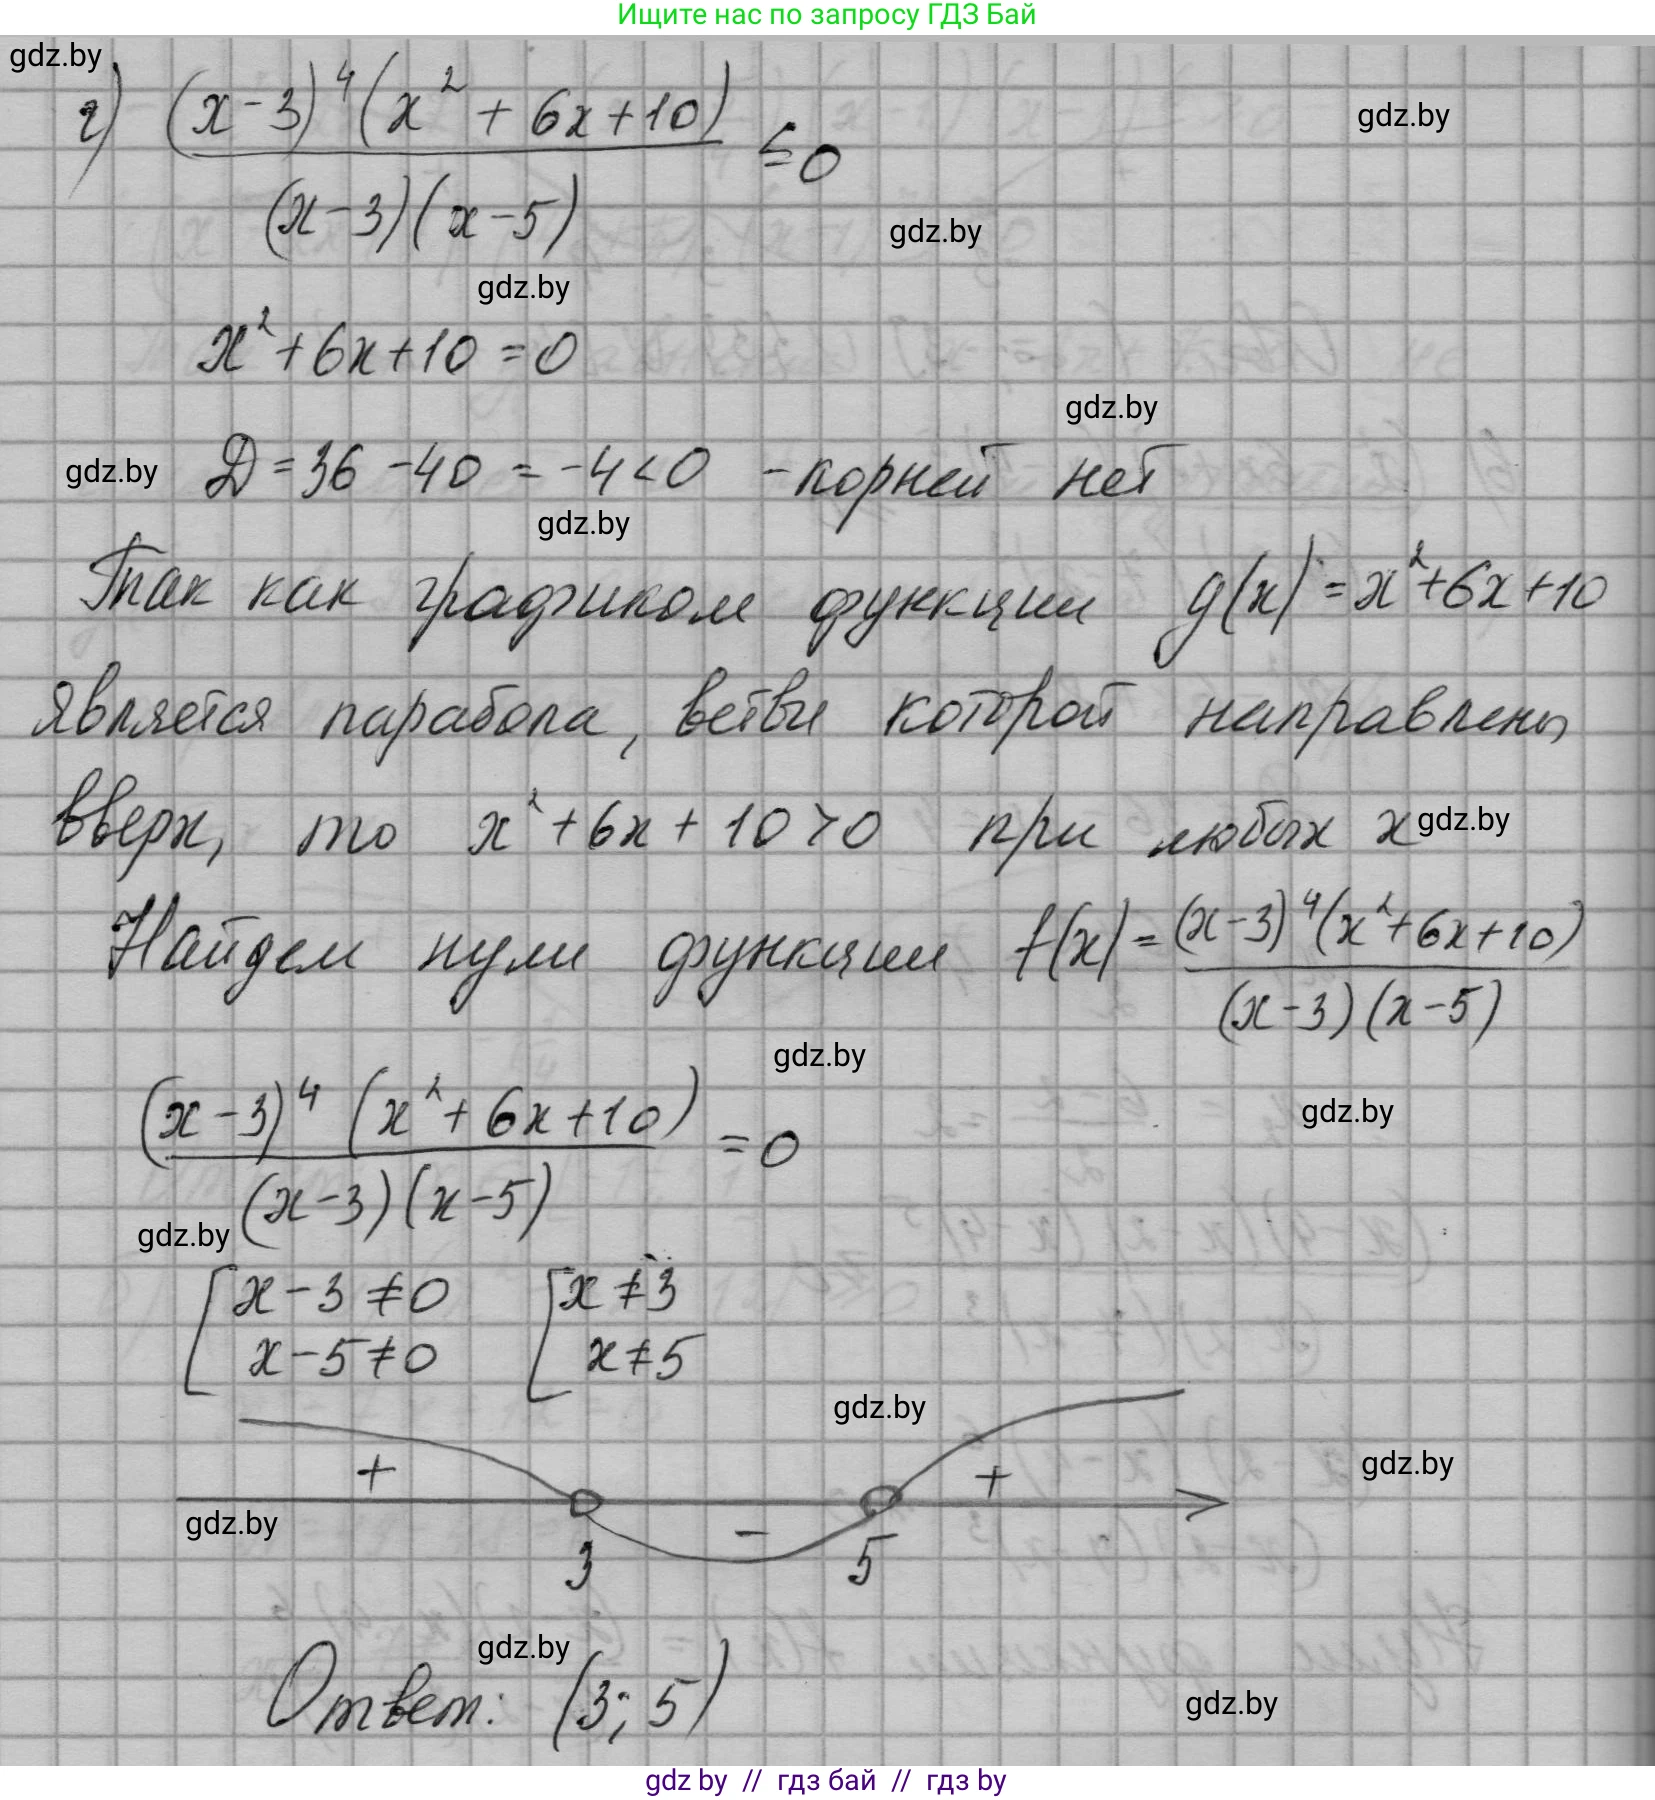 Ищите нас по запросу ГДЗ Бай
gdz.by
г) (x-3)⁴(x²+6x+10)
≤0
gdz.by
(x-3)(x-5)
gdz.by
gdz.by
x²+6x+10=0
gdz.by
gdz.by
D=36-40=-4<0 -корней нет
gdz.by
Так как графиком функции g(x)=x²+6x+10
является парабола, ветви которой направлены
вверх, то x²+6x+10>0 при любых x
gdz.by
Найдем нули функции f(x)= (x-3)⁴(x²+6x+10)
(x-3)(x-5)
gdz.by
(x-3)⁴(x²+6x+10)
=0
gdz.by
(x-3)(x-5)
gdz.by
[x-3≠0 [x≠3
x-5≠0 x≠5
gdz.by
gdz.by
+ - +
gdz.by
3 5
gdz.by
Ответ: (3; 5)
gdz.by
gdz by // гдз бай // гдз by